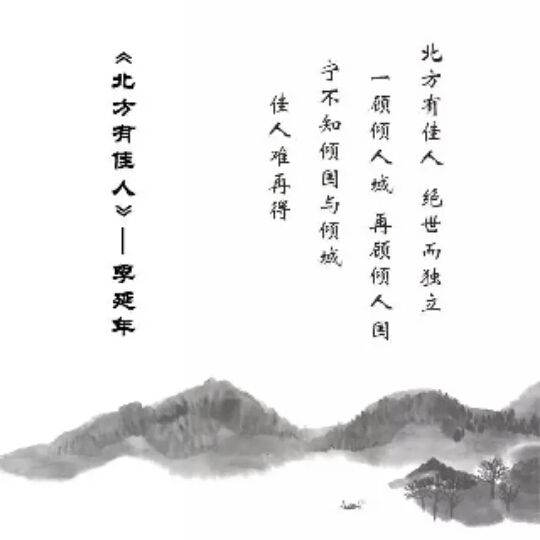 北方有佳人 绝世而独立
一顾倾人城 再顾倾人国
宁不知倾国与倾城
佳人难再得
《北方有佳人》—李延年